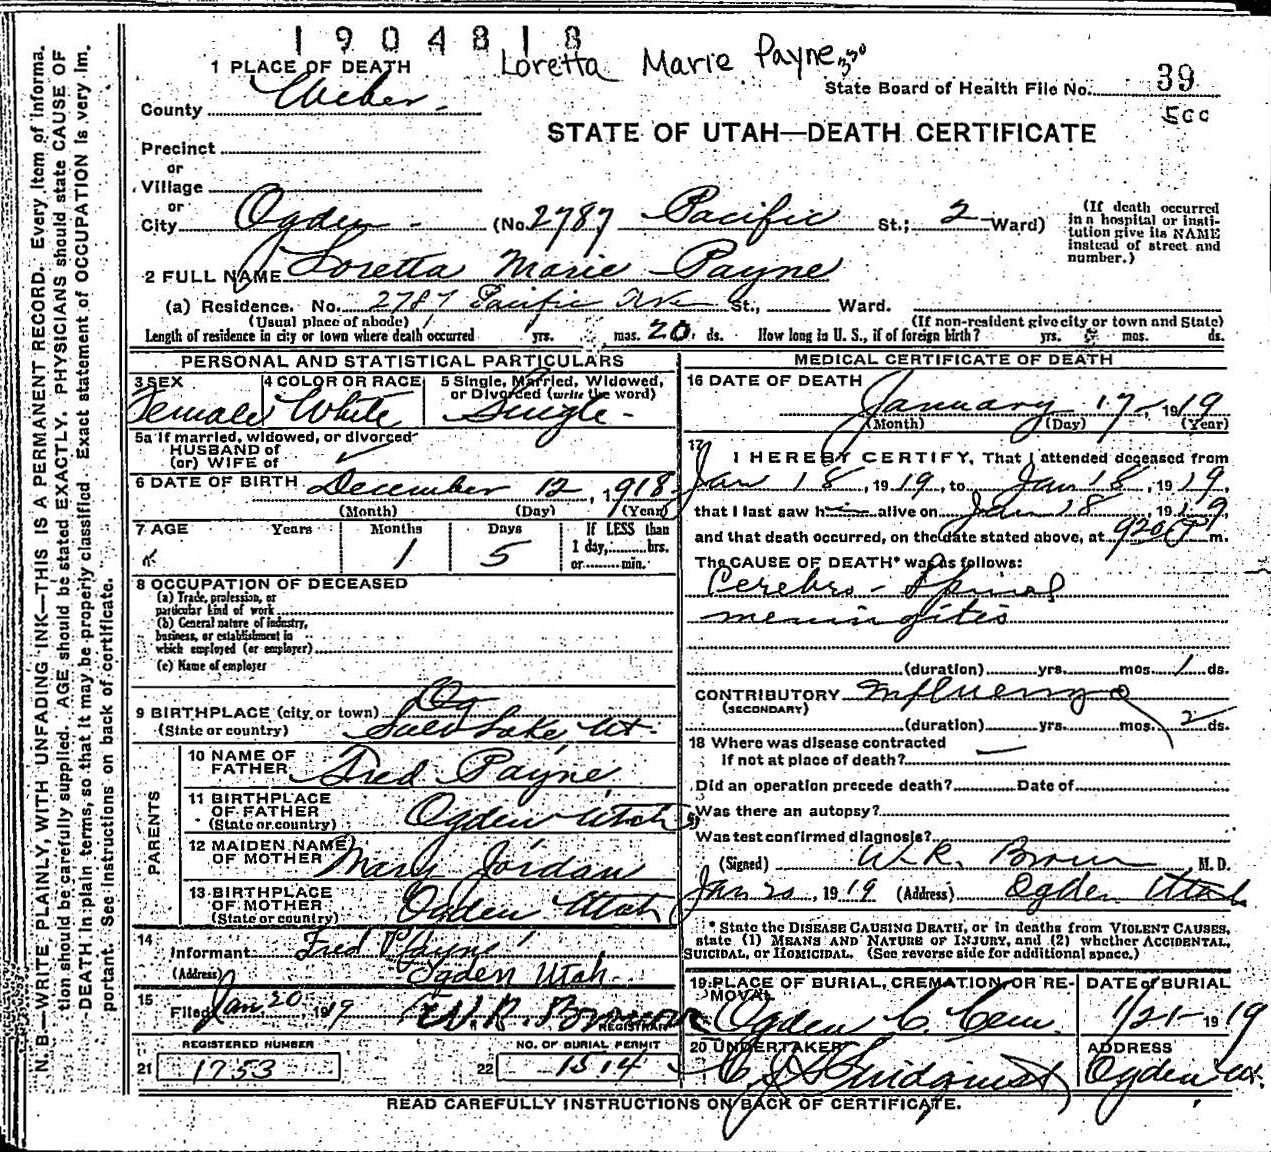 1904818
Loretta Marie Payne
1 PLACE OF DEATH
State Board of Health File No. 39
County Weber
STATE OF UTAH—DEATH CERTIFICATE
Precinct
or
Village
or
City Ogden (No. 2787 Pacific St.; 2 Ward)
(If death occurred
in a hospital or insti-
tution give its NAME
instead of street and
number.)
2 FULL NAME Loretta Marie Payne
(a) Residence. No. 2787 Pacific Ave St., Ward.
(Usual place of abode)
(If non-resident give city or town and State)
Length of residence in city or town where death occurred yrs. 1 mos. 20 ds. How long in U. S., if of foreign birth? yrs. mos. ds.
PERSONAL AND STATISTICAL PARTICULARS
3 SEX
Female
4 COLOR OR RACE
White
5 Single, Married, Widowed,
or Divorced (write the word)
Single
5a If married, widowed, or divorced
HUSBAND of
(or) WIFE of
6 DATE OF BIRTH December 12, 1918
(Month) (Day) (Year)
7 AGE Years Months Days If LESS than
1 5 1 day,........hrs.
or........min.
8 OCCUPATION OF DECEASED
(a) Trade, profession, or
particular kind of work
(b) General nature of industry,
business, or establishment in
which employed (or employer)
(c) Name of employer
9 BIRTHPLACE (city or town) Og
(State or country) Salt Lake Ut.
PARENTS
10 NAME OF
FATHER Fred Payne
11 BIRTHPLACE
OF FATHER Ogden Utah
(State or country)
12 MAIDEN NAME
OF MOTHER Mary Jordan
13 BIRTHPLACE
OF MOTHER Ogden Utah
(State or country)
14
Informant Fred Payne
(Address) Ogden Utah
15
Filed Jan. 20, 1919 W. R. Brown
REGISTRAR
REGISTERED NUMBER
21 1753
NO. OF BURIAL PERMIT
22 1514
MEDICAL CERTIFICATE OF DEATH
16 DATE OF DEATH
January 17, 1919
(Month) (Day) (Year)
17
I HEREBY CERTIFY, That I attended deceased from
Jan 18, 1919, to Jan 18, 1919,
that I last saw h alive on Jan 18, 1919
and that death occurred, on the date stated above, at 920 P m.
The CAUSE OF DEATH* was as follows:
Cerebro-Spinal
meningitis
(duration) yrs. mos. 1 ds.
CONTRIBUTORY Influenza
(SECONDARY)
(duration) yrs. mos. 2 ds.
18 Where was disease contracted
If not at place of death?
Did an operation precede death? Date of
Was there an autopsy?
Was test confirmed diagnosis?
(Signed) W. R. Brown M. D.
Jan 20, 1919 (Address) Ogden Utah
* State the DISEASE CAUSING DEATH, or in deaths from VIOLENT CAUSES,
state (1) MEANS AND NATURE OF INJURY, and (2) whether ACCIDENTAL,
SUICIDAL, or HOMICIDAL. (See reverse side for additional space.)
19 PLACE OF BURIAL, CREMATION, OR RE-
MOVAL
Ogden C. Cem.
DATE of BURIAL
1/21 1919
20 UNDERTAKER
ADDRESS
Ogden Ut.
READ CAREFULLY INSTRUCTIONS ON BACK OF CERTIFICATE.
N. B.—WRITE PLAINLY, WITH UNFADING INK—THIS IS A PERMANENT RECORD. Every item of informa-
tion should be carefully supplied. AGE should be stated EXACTLY. PHYSICIANS should state CAUSE OF
DEATH in plain terms, so that it may be properly classified. Exact statement of OCCUPATION is very im-
portant. See instructions on back of certificate.